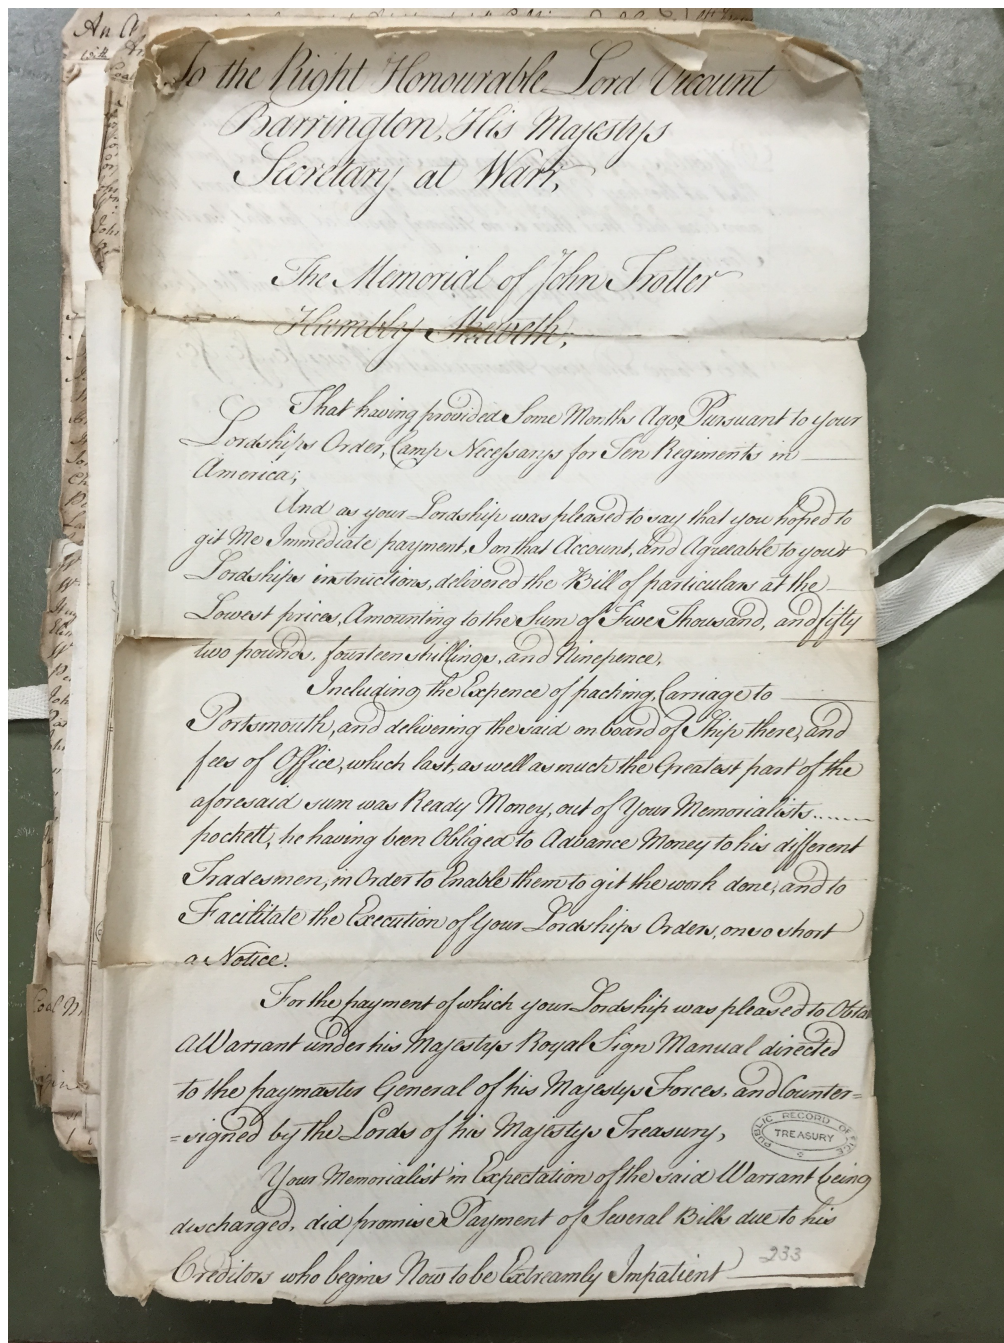 To the Right Honourable Lord Vicount
Barrington, His Majestys
Secretary at Warr,
The Memorial of John Trotter
Humbly Sheweth,
That having provided Some Months Ago, Pursuant to your
Lordships Order, Camp Necessarys for Ten Regiments in
America;
And as your Lordship was pleased to say that you hoped to
git Me Immediate payment, I on that Account, and Agreeable to your
Lordships instructions, delivered the Bill of particulars at the
Lowest prices, Amounting to the Sum of Five Thousand, and fifty
two pounds, fourteen shillings, and Ninepence,
Including the Expence of packing, Carriage to
Portsmouth, and delivering the said on board of Ship there, and
fees of Office, which last, as well as much the Greatest part of the
aforesaid sum was Ready Money, out of Your Memorialists......
pockett, he having been Obliged to Advance Money to his different
Tradesmen, in Order to Enable them to git the work done, and to
Facilitate the Execution of Your Lordships Orders, on so short
a Notice.
For the payment of which your Lordship was pleased to Obtai
a Warrant under his Majestys Royal Sign Manual directed
to the paymaster General of his Majestys Forces, and Counter=
=signed by the Lords of his Majestys Treasury,
PUBLIC RECORD OFFICE
TREASURY
Your Memorialist in Expectation of the said Warrant being
discharged, did promise Payment of Several Bills due to his
Creditors who begins Now to be Extreamly Impatient
233